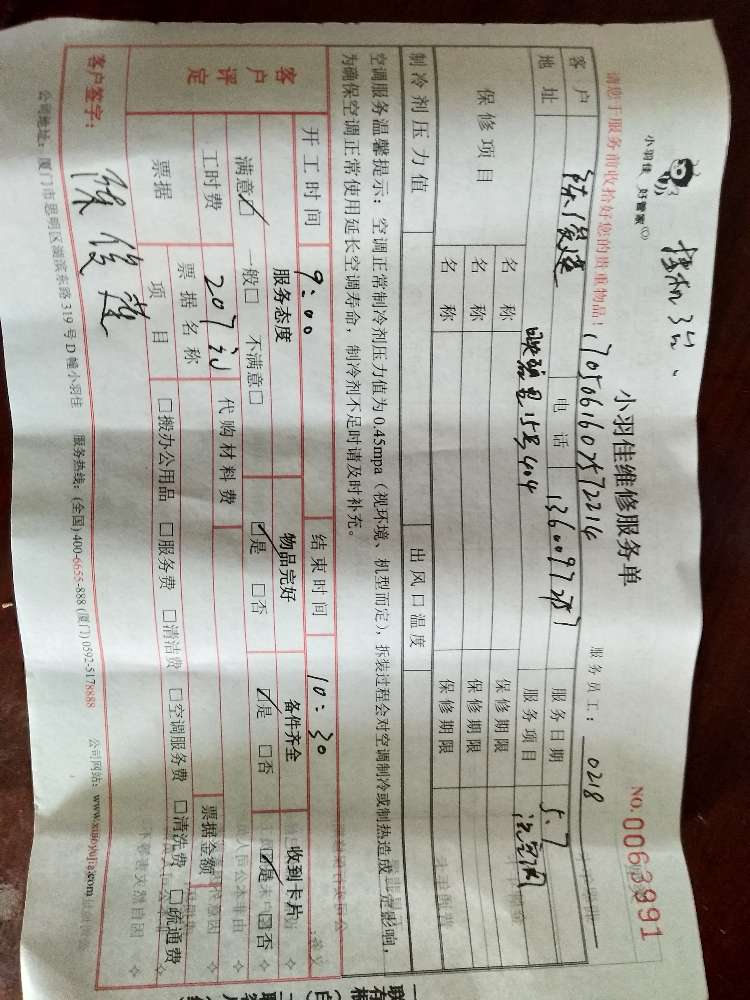 挂机3台、
小羽佳 好管家
小羽佳维修服务单
NO.0063991
请您于服务前收拾好您的贵重物品!
17050661607572214
服务员工: 0218
客户 电话 服务日期 5.7
地址 15号404 服务项目 洗空调
保修项目 名称 保修期限
名称 保修期限
名称 保修期限
制冷剂压力值 出风口温度
空调服务温馨提示: 空调正常制冷剂压力值为0.45mpa(视环境、机型而定), 拆装过程会对空调制冷或制热造成一定影响,
为确保空调正常使用延长空调寿命, 制冷剂不足时请及时补充。
开工时间 9:00 结束时间 10:30
客户评定
服务态度 物品完好 备件齐全 收到卡片
满意☑ 一般□ 不满意□ ☑是 □否 ☑是 □否 ☑是 □否
工时费 207元 代购材料费
票据 票据名称 票据金额
项目 □搬办公用品 □服务费 □清洁费 □空调服务费 □清洗费 □疏通费
客户签字:
公司地址: 厦门市思明区湖滨东路319号D幢小羽佳 服务热线: (全国) 400-6655-888 (厦门) 0592-5178888 公司网站: www.xiaoyujia.com